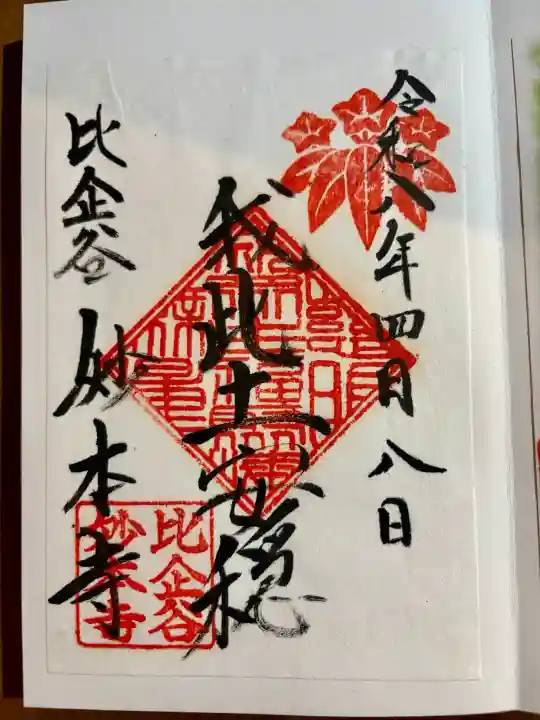 令和八年四月八日
我此土安穏
比企谷
妙本寺
比企谷
妙本寺